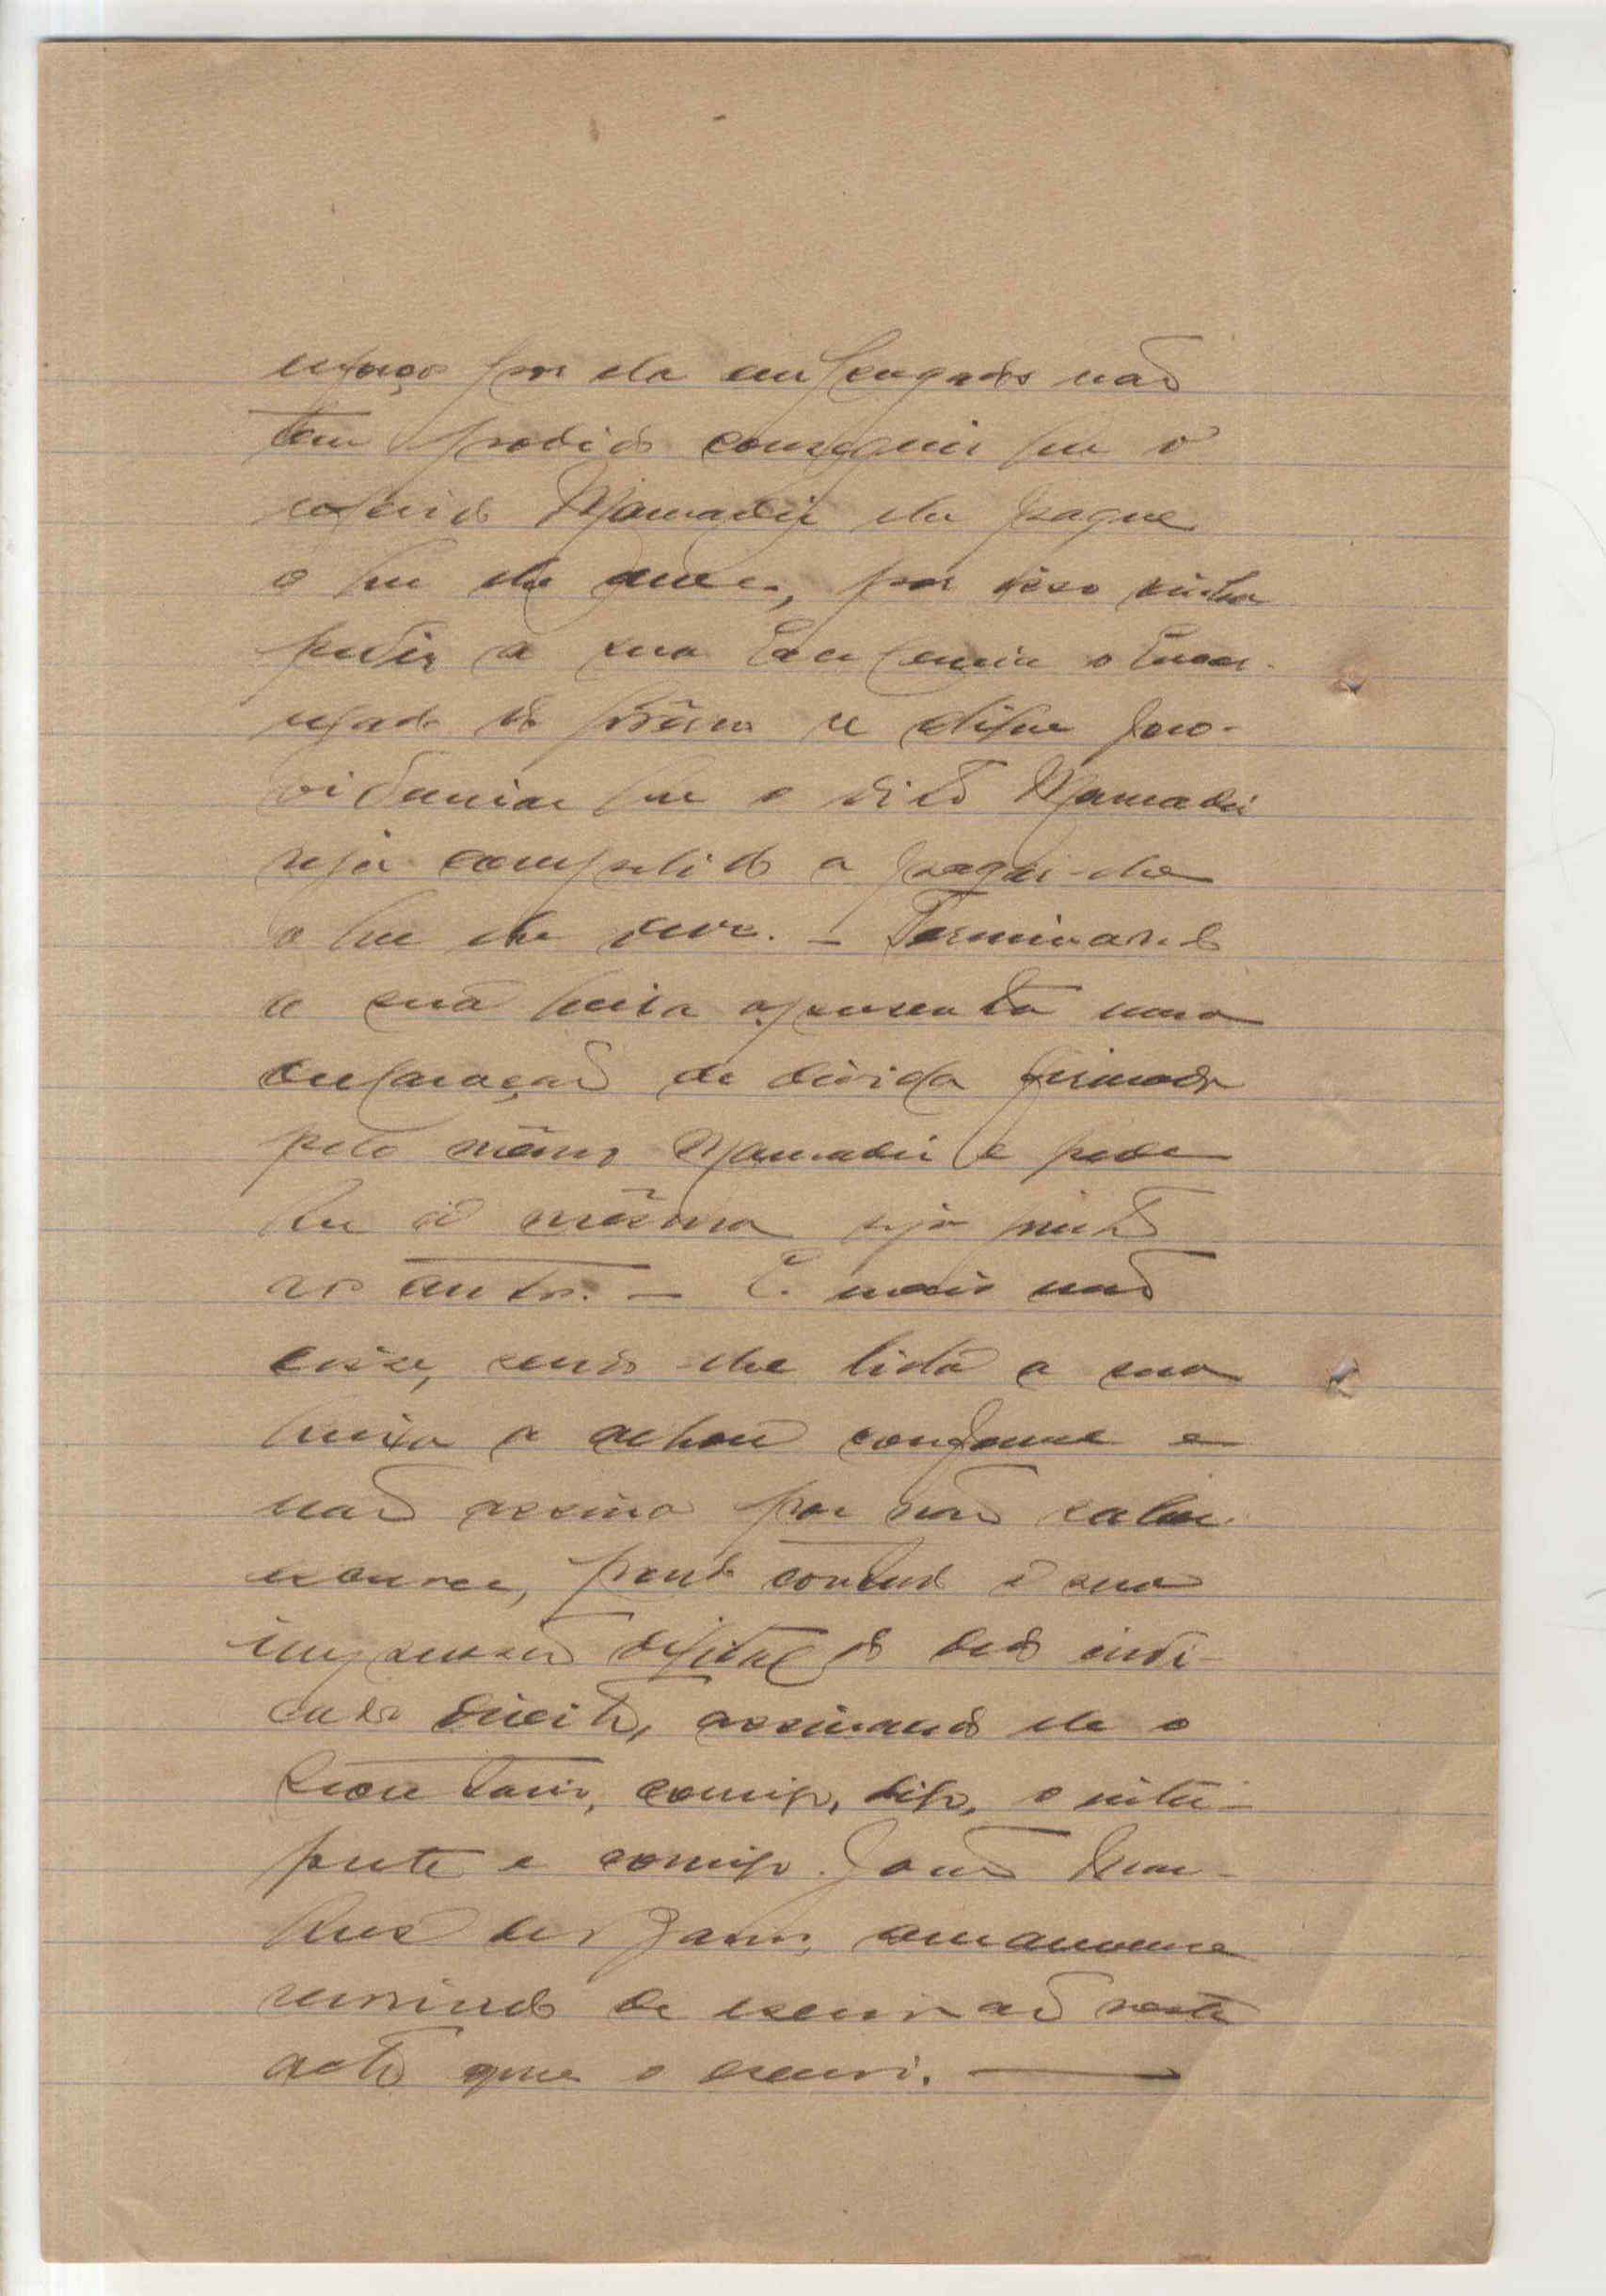 esforço por ele empregados não
tem podido conseguir que o
referido Mamadú lhe pague
o que lhe deve, por isso vinha
pedir a sua Excelencia o Encar-
regado do se digne pro-
videnciar que o dito Mamadú
seja compelido a pagar-lhe
o que lhe deve. — Terminando
a sua queixa apresenta uma
declaração de divida firmada
pelo mêsmo Mamadú e pede
que a mêsma seja junta
aos autos. — E mais não
disse, sendo-lhe lida a sua
queixa a achou conforme e
não assina por não saber
escrever, pondo contudo a sua
impressão digital do dedo indi-
cador direito, assinando ele o
comigo, digo, o intér-
prete e comigo João
amanuense
servindo de escrivão neste
acto que o escrevi. —